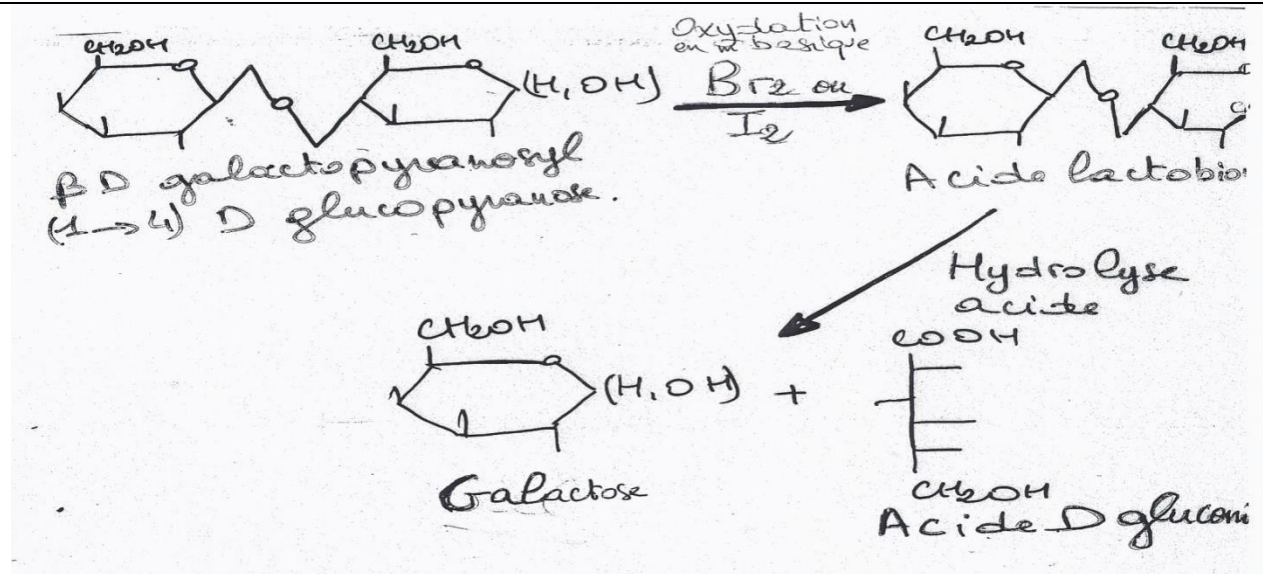 CH2OH
CH2OH
(H, OH)
Oxydation
en m basique
Br2 ou
I2
CH2OH
CH2OH
β D galactopyranosyl
(1→4) D glucopyranose.
Acide lactobio
Hydrolyse
acide
CH2OH
(H, OH) +
COOH
CH2OH
Galactose
Acide D gluconi